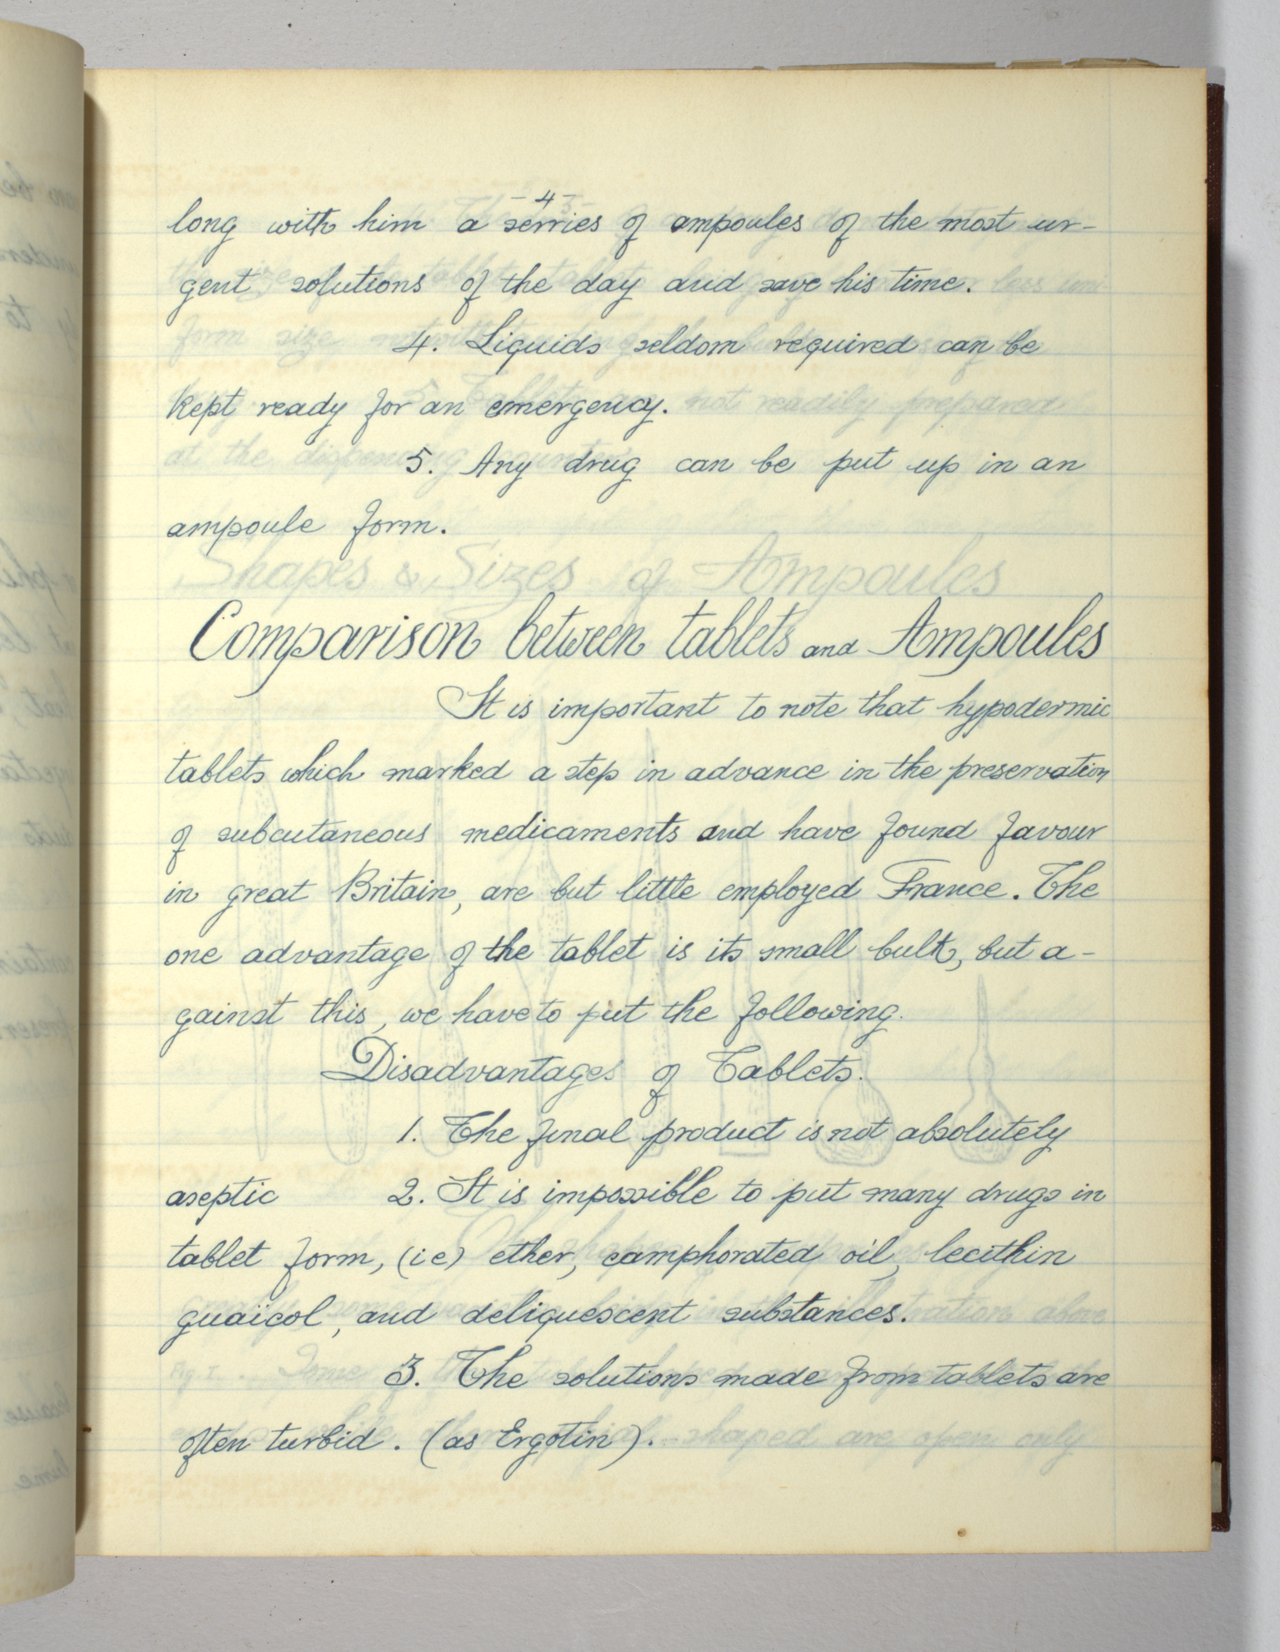 -4-
long with him a serries of ampoules of the most ur-
gent solutions of the day and save his time.
4. Liquids seldom required can be
kept ready for an emergency.
5. Any drug can be put up in an
ampoule form.
Comparison between tablets and Ampoules
It is important to note that hypodermic
tablets which marked a step in advance in the preservation
of subcutaneous medicaments and have found favour
in great Britain, are but little employed France. The
one advantage of the tablet is its small bulk, but a-
gainst this, we have to put the following.
Disadvantages of Tablets.
1. The final product is not absolutely
aseptic 2. It is impossible to put many drugs in
tablet form, (ie) ether, camphorated oil, lecithin
guaïcol, and deliquescent substances.
3. The solutions made from tablets are
often turbid. (as Ergotin).